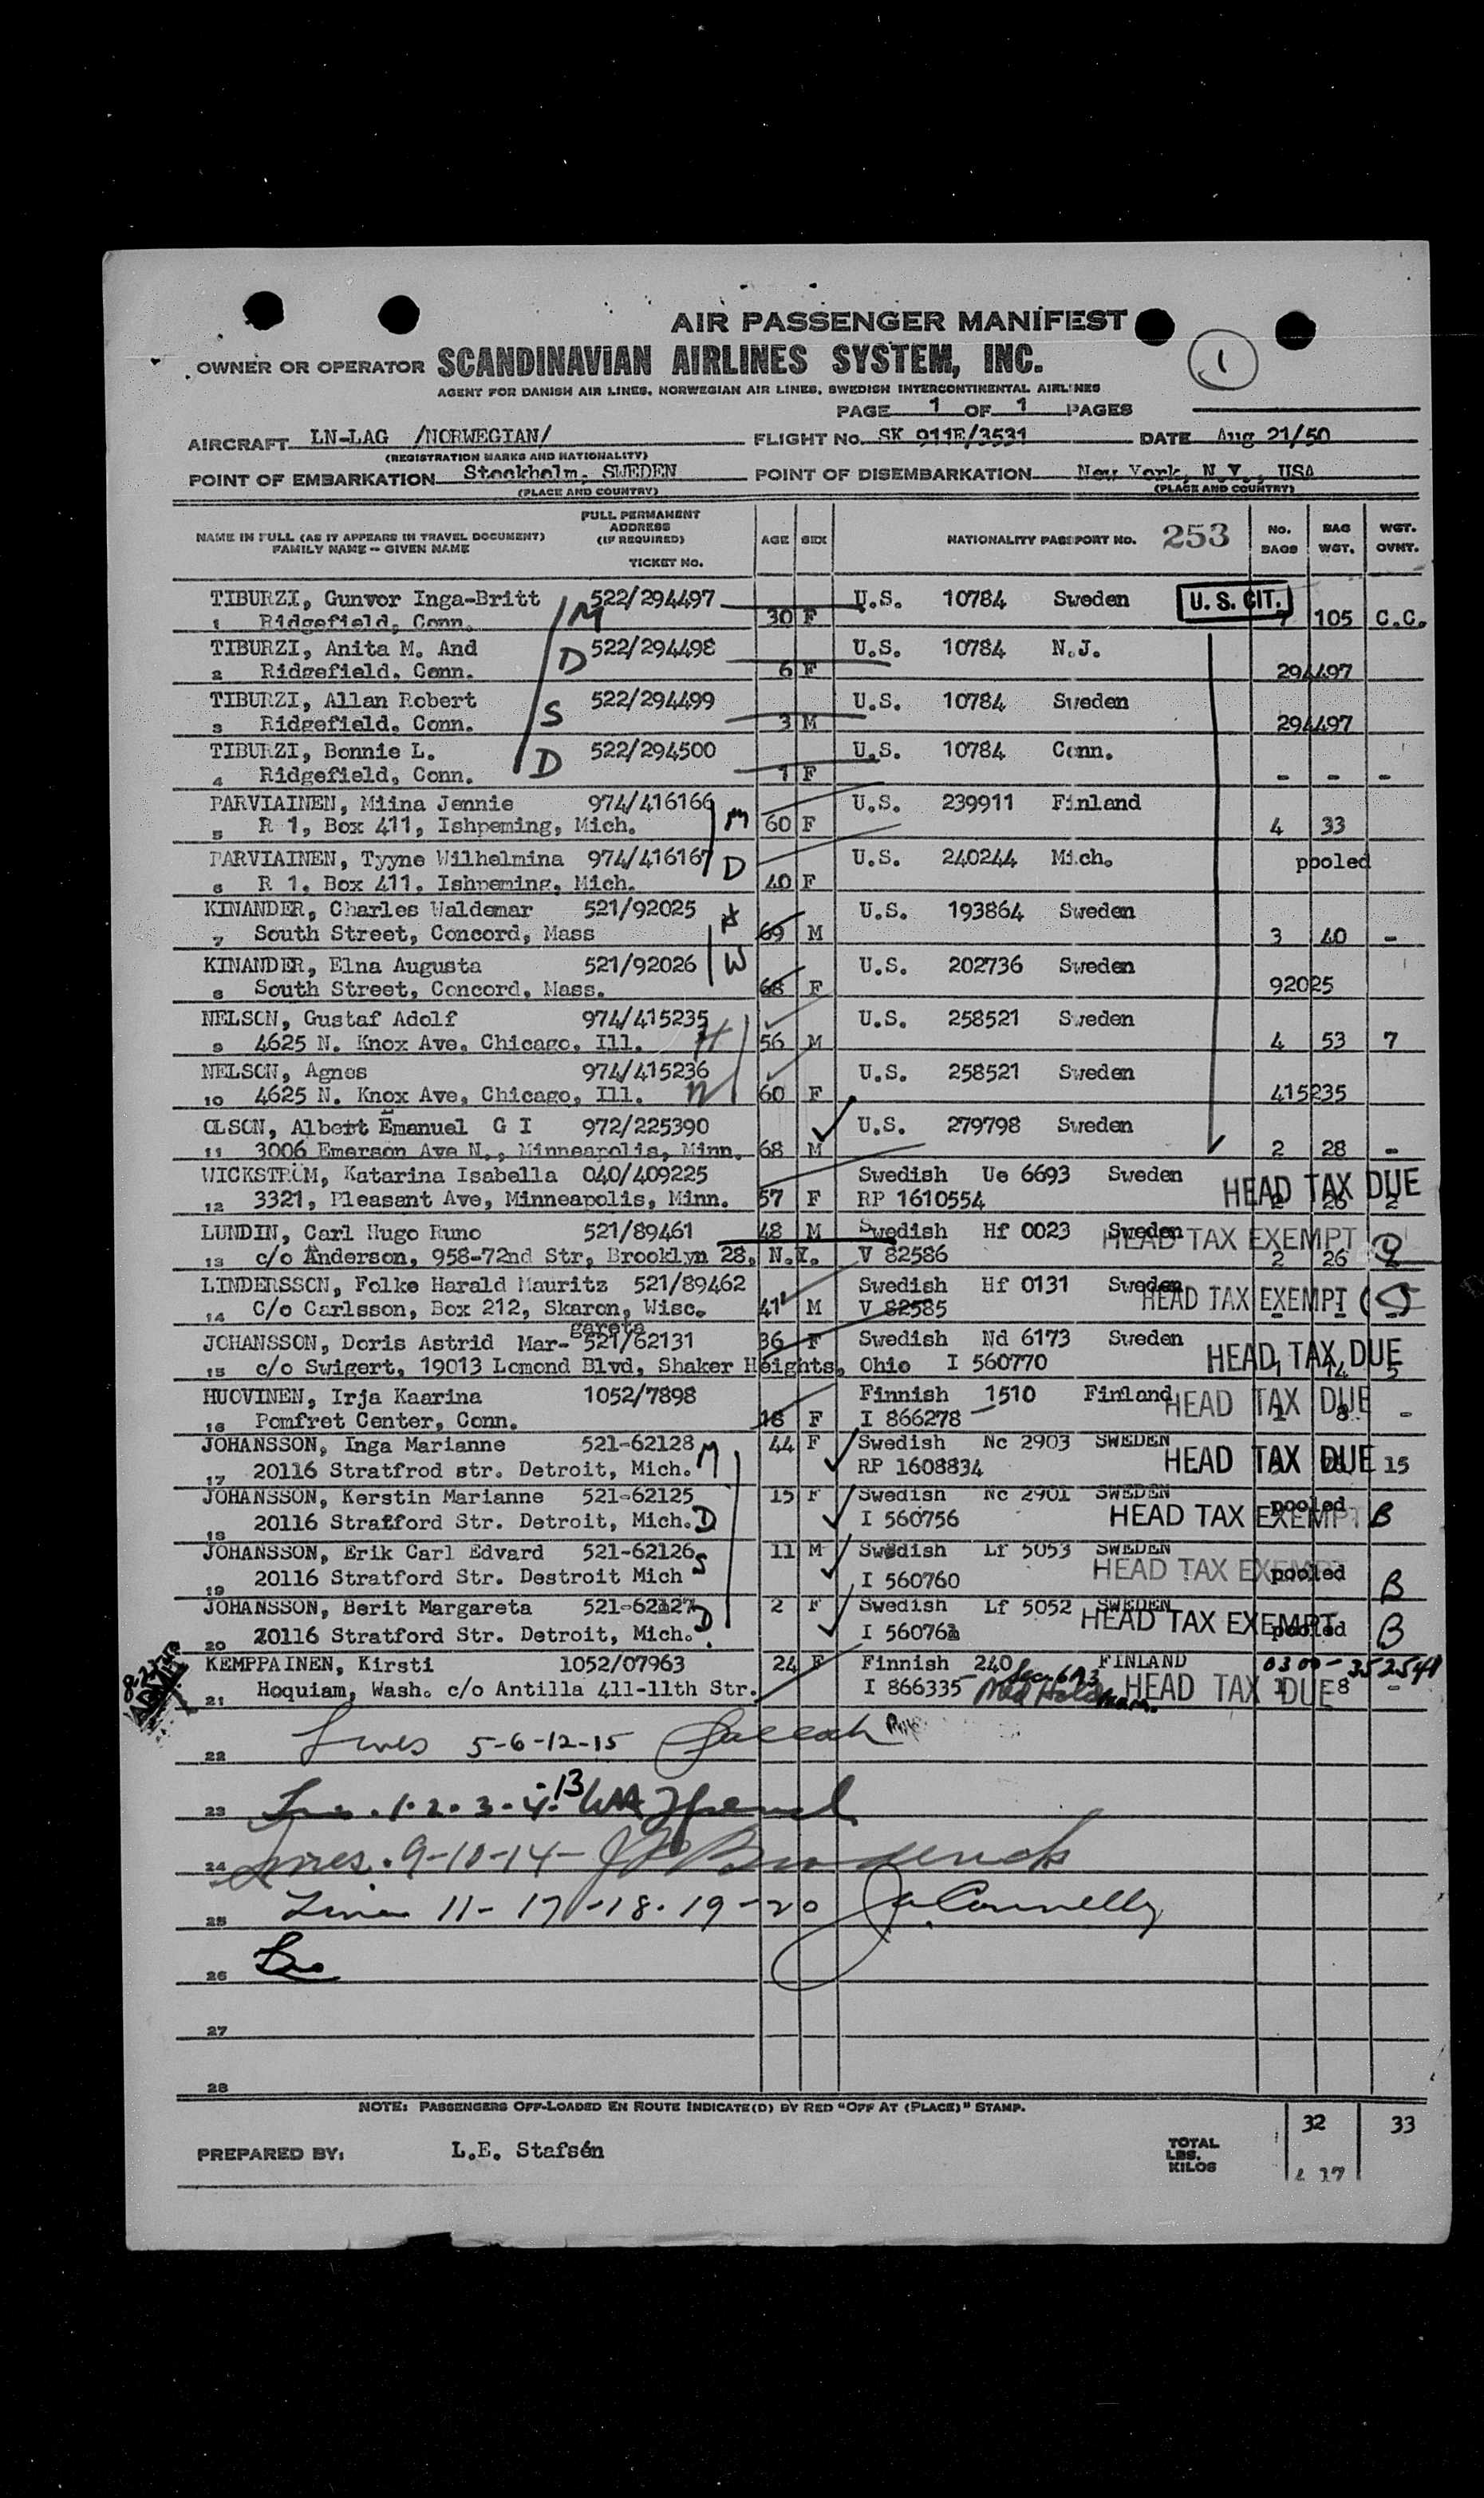 AIR PASSENGER MANIFEST
1
OWNER OR OPERATOR SCANDINAVIAN AIRLINES SYSTEM, INC.
AGENT FOR DANISH AIR LINES, NORWEGIAN AIR LINES, SWEDISH INTERCONTINENTAL AIRLINES
PAGE 1 OF 1 PAGES
AIRCRAFT LN-LAG /NORWEGIAN/ FLIGHT No. SK 911E/3531 DATE Aug 21/50
(REGISTRATION MARKS AND NATIONALITY)
POINT OF EMBARKATION Stockholm, SWEDEN POINT OF DISEMBARKATION New York, N.Y., USA
(PLACE AND COUNTRY) (PLACE AND COUNTRY)
NAME IN FULL (AS IT APPEARS IN TRAVEL DOCUMENT) FAMILY NAME -- GIVEN NAME FULL PERMANENT ADDRESS (IF REQUIRED) TICKET No. AGE SEX NATIONALITY PASSPORT No. 253 No. BAGS BAG WGT. WGT. OVHT.
TIBURZI, Gunvor Inga-Britt 522/294497 U.S. 10784 Sweden U. S. CIT.
1 Ridgefield, Conn. M 30 F 7 105 C.C.
TIBURZI, Anita M. And 522/294498 U.S. 10784 N.J.
2 Ridgefield, Conn. D 6 F 294497
TIBURZI, Allan Robert 522/294499 U.S. 10784 Sweden
3 Ridgefield, Conn. S 3 M 294497
TIBURZI, Bonnie L. 522/294500 U.S. 10784 Conn.
4 Ridgefield, Conn. D 1 F - - -
PARVIAINEN, Miina Jennie 974/416166 U.S. 239911 Finland
5 R 1, Box 411, Ishpeming, Mich. M 60 F 4 33
PARVIAINEN, Tyyne Wilhelmina 974/416167 U.S. 240244 Mich. pooled
6 R 1, Box 411, Ishpeming, Mich. D 40 F
KINANDER, Charles Waldemar 521/92025 U.S. 193864 Sweden
7 South Street, Concord, Mass 69 M 3 40 -
KINANDER, Elna Augusta 521/92026 W U.S. 202736 Sweden
8 South Street, Concord, Mass. 68 F 92025
NELSON, Gustaf Adolf 974/415235 U.S. 258521 Sweden
9 4625 N. Knox Ave, Chicago, Ill. H 56 M 4 53 7
NELSON, Agnes 974/415236 U.S. 258521 Sweden
10 4625 N. Knox Ave, Chicago, Ill. W 60 F 415235
OLSON, Albert Emanuel G I 972/225390 U.S. 279798 Sweden
11 3006 Emerson Ave N., Minneapolis, Minn. 68 M 2 28 -
WICKSTRÖM, Katarina Isabella 040/409225 Swedish Ue 6693 Sweden HEAD TAX DUE
12 3321, Pleasant Ave, Minneapolis, Minn. 57 F RP 1610554 2 26 2
LUNDIN, Carl Hugo Runo 521/89461 48 M Swedish Hf 0023 Sweden HEAD TAX EXEMPT
13 c/o Anderson, 958-72nd Str, Brooklyn 28, N.Y. V 82586 2 26
LINDERSSON, Folke Harald Mauritz 521/89462 Swedish Hf 0131 Sweden HEAD TAX EXEMPT
14 C/o Carlsson, Box 212, Skaron, Wisc. 41 M V 82585
JOHANSSON, Doris Astrid Mar-gareta 521/62131 36 F Swedish Nd 6173 Sweden HEAD TAX DUE
15 c/o Swigert, 19013 Lomond Blvd, Shaker Heights, Ohio I 560770 1 14 5
HUOVINEN, Irja Kaarina 1052/7898 Finnish 1510 Finland HEAD TAX DUE
16 Pomfret Center, Conn. 18 F I 866278 1 8 -
JOHANSSON, Inga Marianne 521-62128 M 44 F Swedish Nc 2903 SWEDEN HEAD TAX DUE
17 20116 Stratfrod str. Detroit, Mich. RP 1608834 15
JOHANSSON, Kerstin Marianne 521-62125 15 F Swedish Nc 2901 SWEDEN pooled
18 20116 Stratford Str. Detroit, Mich. D I 560756 HEAD TAX EXEMPT B
JOHANSSON, Erik Carl Edvard 521-62126 S 11 M Swedish Lf 5053 SWEDEN HEAD TAX EXEMPT
19 20116 Stratford Str. Destroit Mich I 560760 pooled B
JOHANSSON, Berit Margareta 521-62127 D 2 F Swedish Lf 5052 SWEDEN HEAD TAX EXEMPT
20 20116 Stratford Str. Detroit, Mich. I 560762 pooled B
KEMPPAINEN, Kirsti 1052/07963 24 F Finnish 240 FINLAND 0300-352541
21 Hoquiam, Wash. c/o Antilla 411-11th Str. I 866335 HEAD TAX DUE 1 8 -
22 Lines 5-6-12-15
23 1.2.3.4.13
24 Lines. 9-10-14-
25 Lines 11-17-18.19-20 Connelly
26
27
28
NOTE: PASSENGERS OFF-LOADED EN ROUTE INDICATE(D) BY RED "OFF AT (PLACE)" STAMP.
32 33
PREPARED BY: L.E. Stafsén TOTAL LBS. KILOS